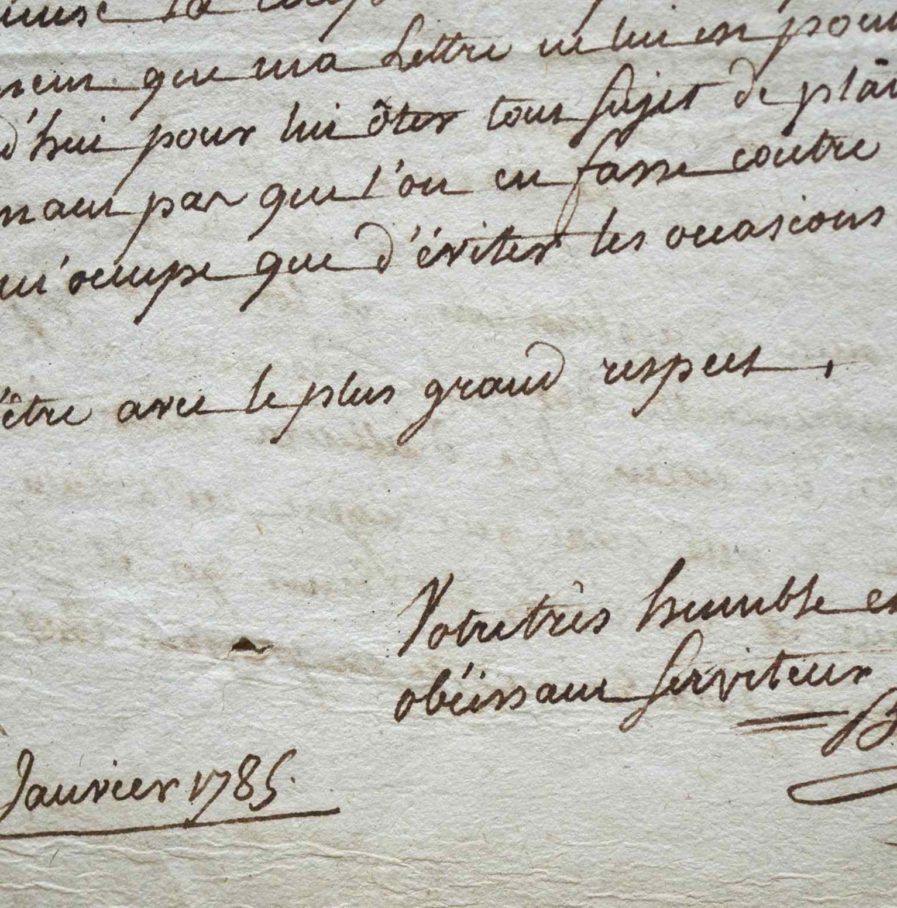 que ma Lettre ne lui en pour
d'hui pour lui ôter tout sujet de plai
pas que l'on en fasse contre
m'ocupe que d'éviter les occasions
être avec le plus grand respect,
Votre très humble et
obéissant serviteur
Janvier 1785.